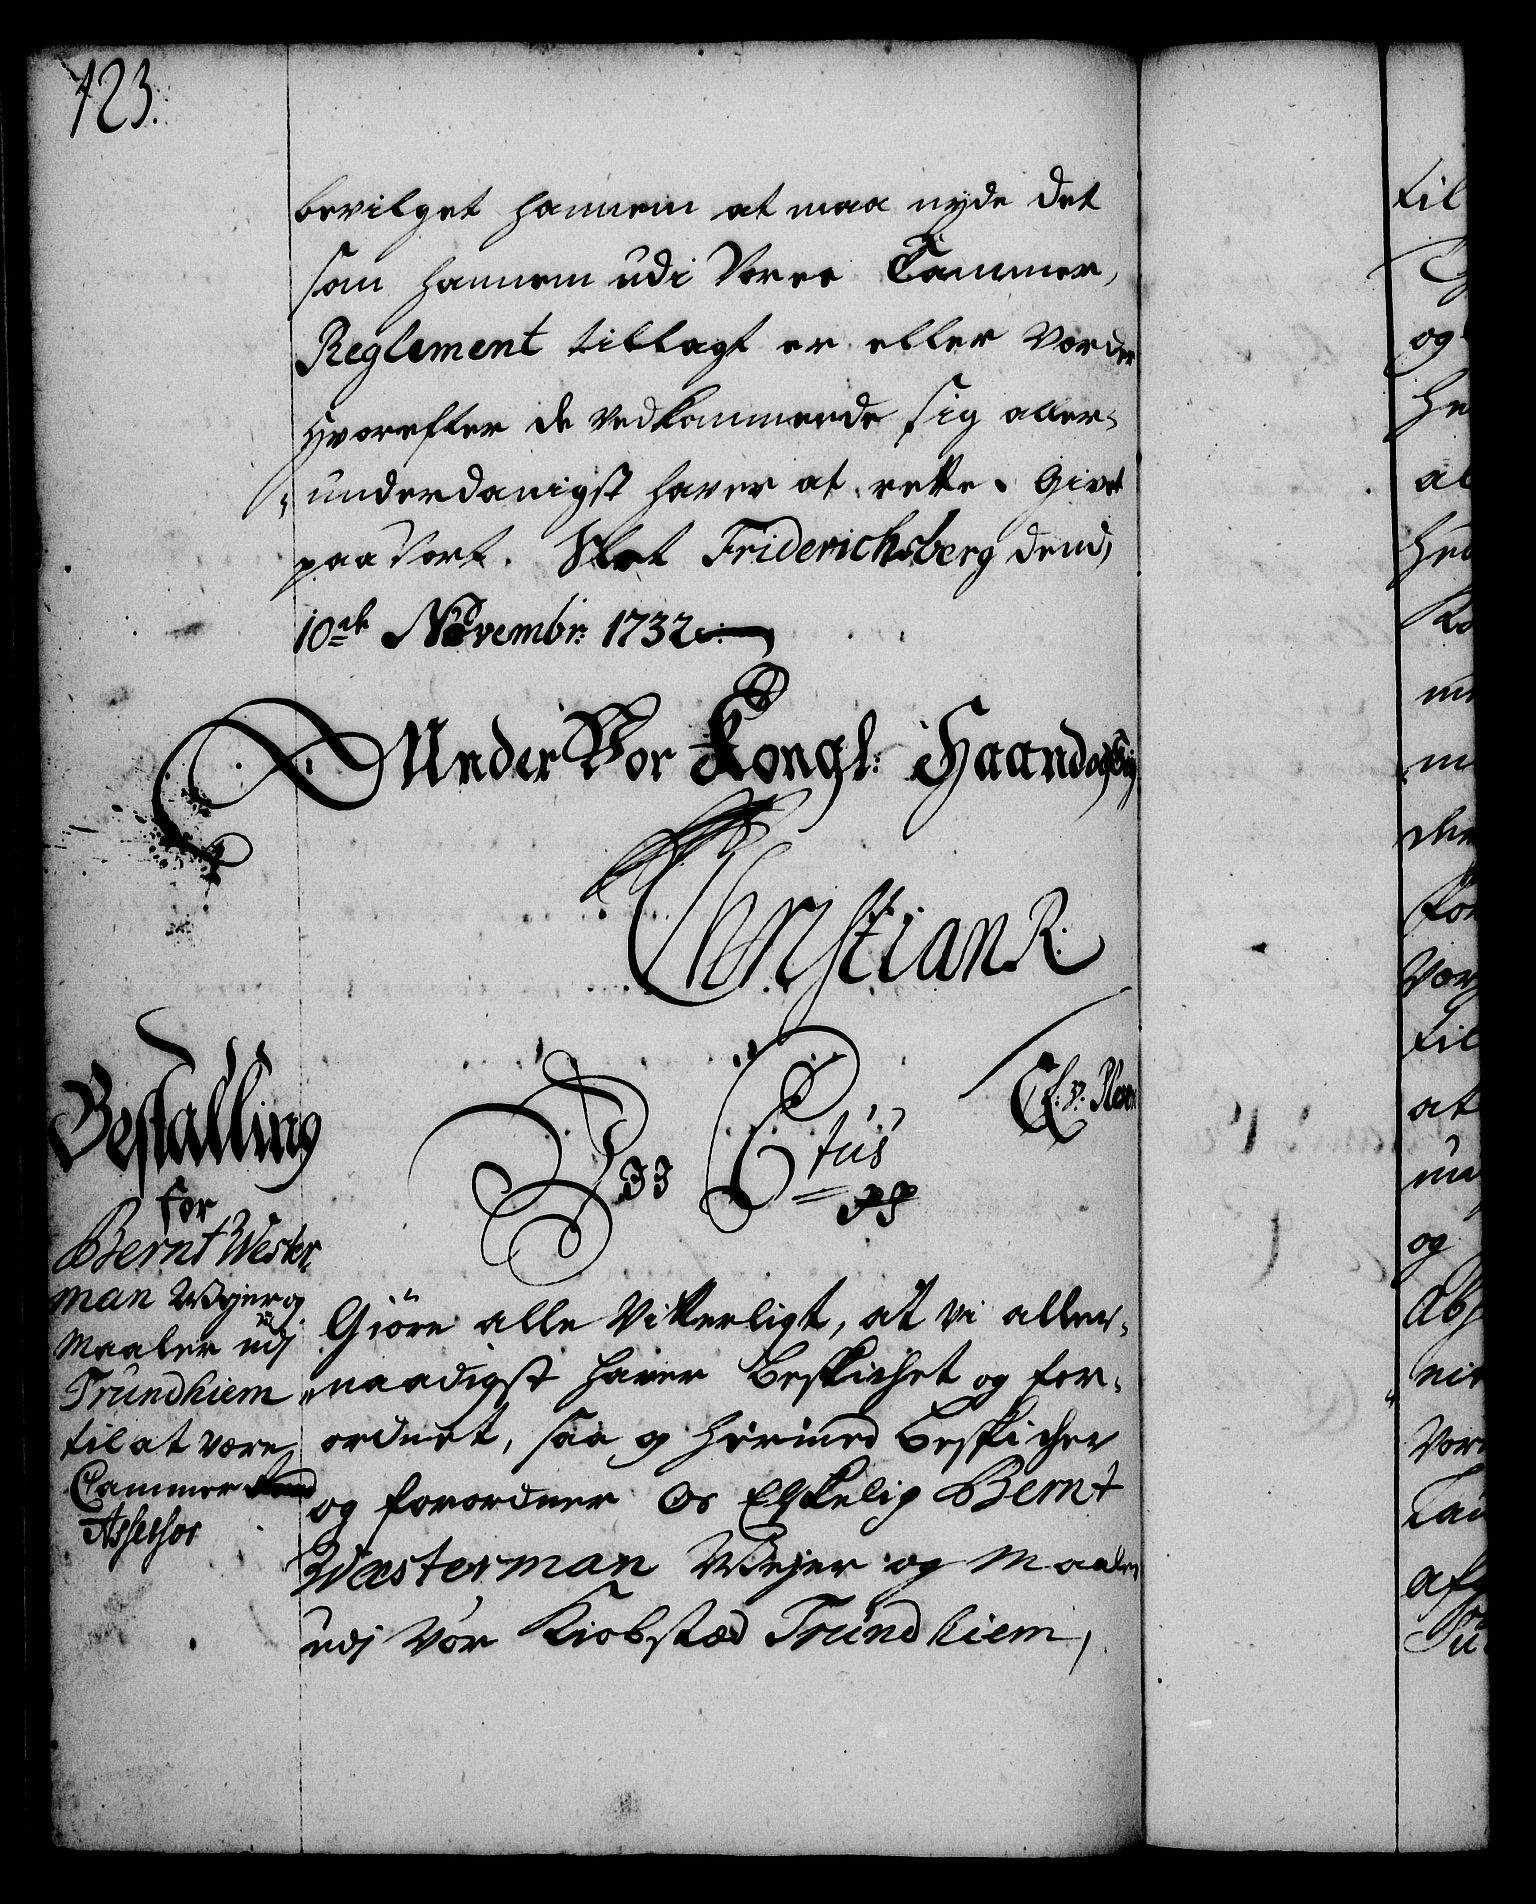 123.
bevilget hannem at maa nyde det
som hannem udi Vores Cammer,
Reglement tillagt er eller vorder
hvorefter de vedkommende sig aller-
underdanigst haver at rette. Givet
paa Vort Slot Friderichsberg dend,
10de Novembr: 1732
Under Vor Kongl: Haand og
Christian R:
C A v: Plessen
Bestalling
for
Bernt Wester
man Wejer og
Maaler udj
Trundhiem
til at være
Cammer
Assessor
Ctus
Giöre alle Vitterligt, at vi aller-
naadigst haver beskichet og for-
ordnet, saa og hermed beskicher
og forordner Os Elskelig Bernt
Wæsterman Wejer og Maaler
udj Vor Kiobstæd Trundhiem,
til
og
at
og